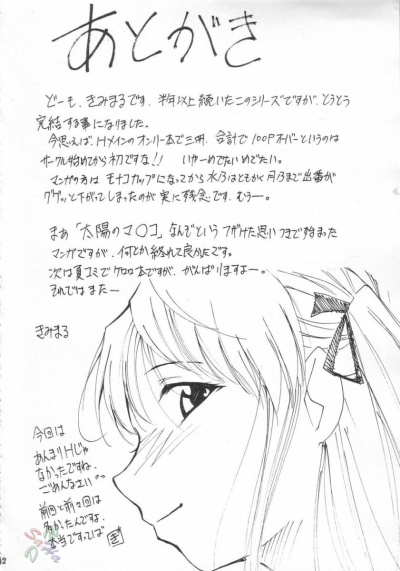 あとがき
どーも、きみまるです。半年以上続いたこのシリーズですが、とうとう
完結する事になりました。
今思えば、Hメインのオンリー本で三冊、合計で100Pオーバーというのは
サークル始めてから初ですな!! いやーめでたいめでたい。
マンガの方は モナコカップになってから 水乃はともかく 月乃まで出番が
ググッと下がってしまったのが 実に残念です。むぅー。
まぁ「太陽のマ○コ」なんぞという フザけた思いつきで始まった
マンガですが、何とか終れて良かったです。
次は夏コミでケロロ本ですが、がんばりますよー。
それでは また ー
きみまる
今回は
あんまりHじゃ
なかったですね、
ごめんなさい。
前回と前々回は
多かったんですよ、
本当ですってば